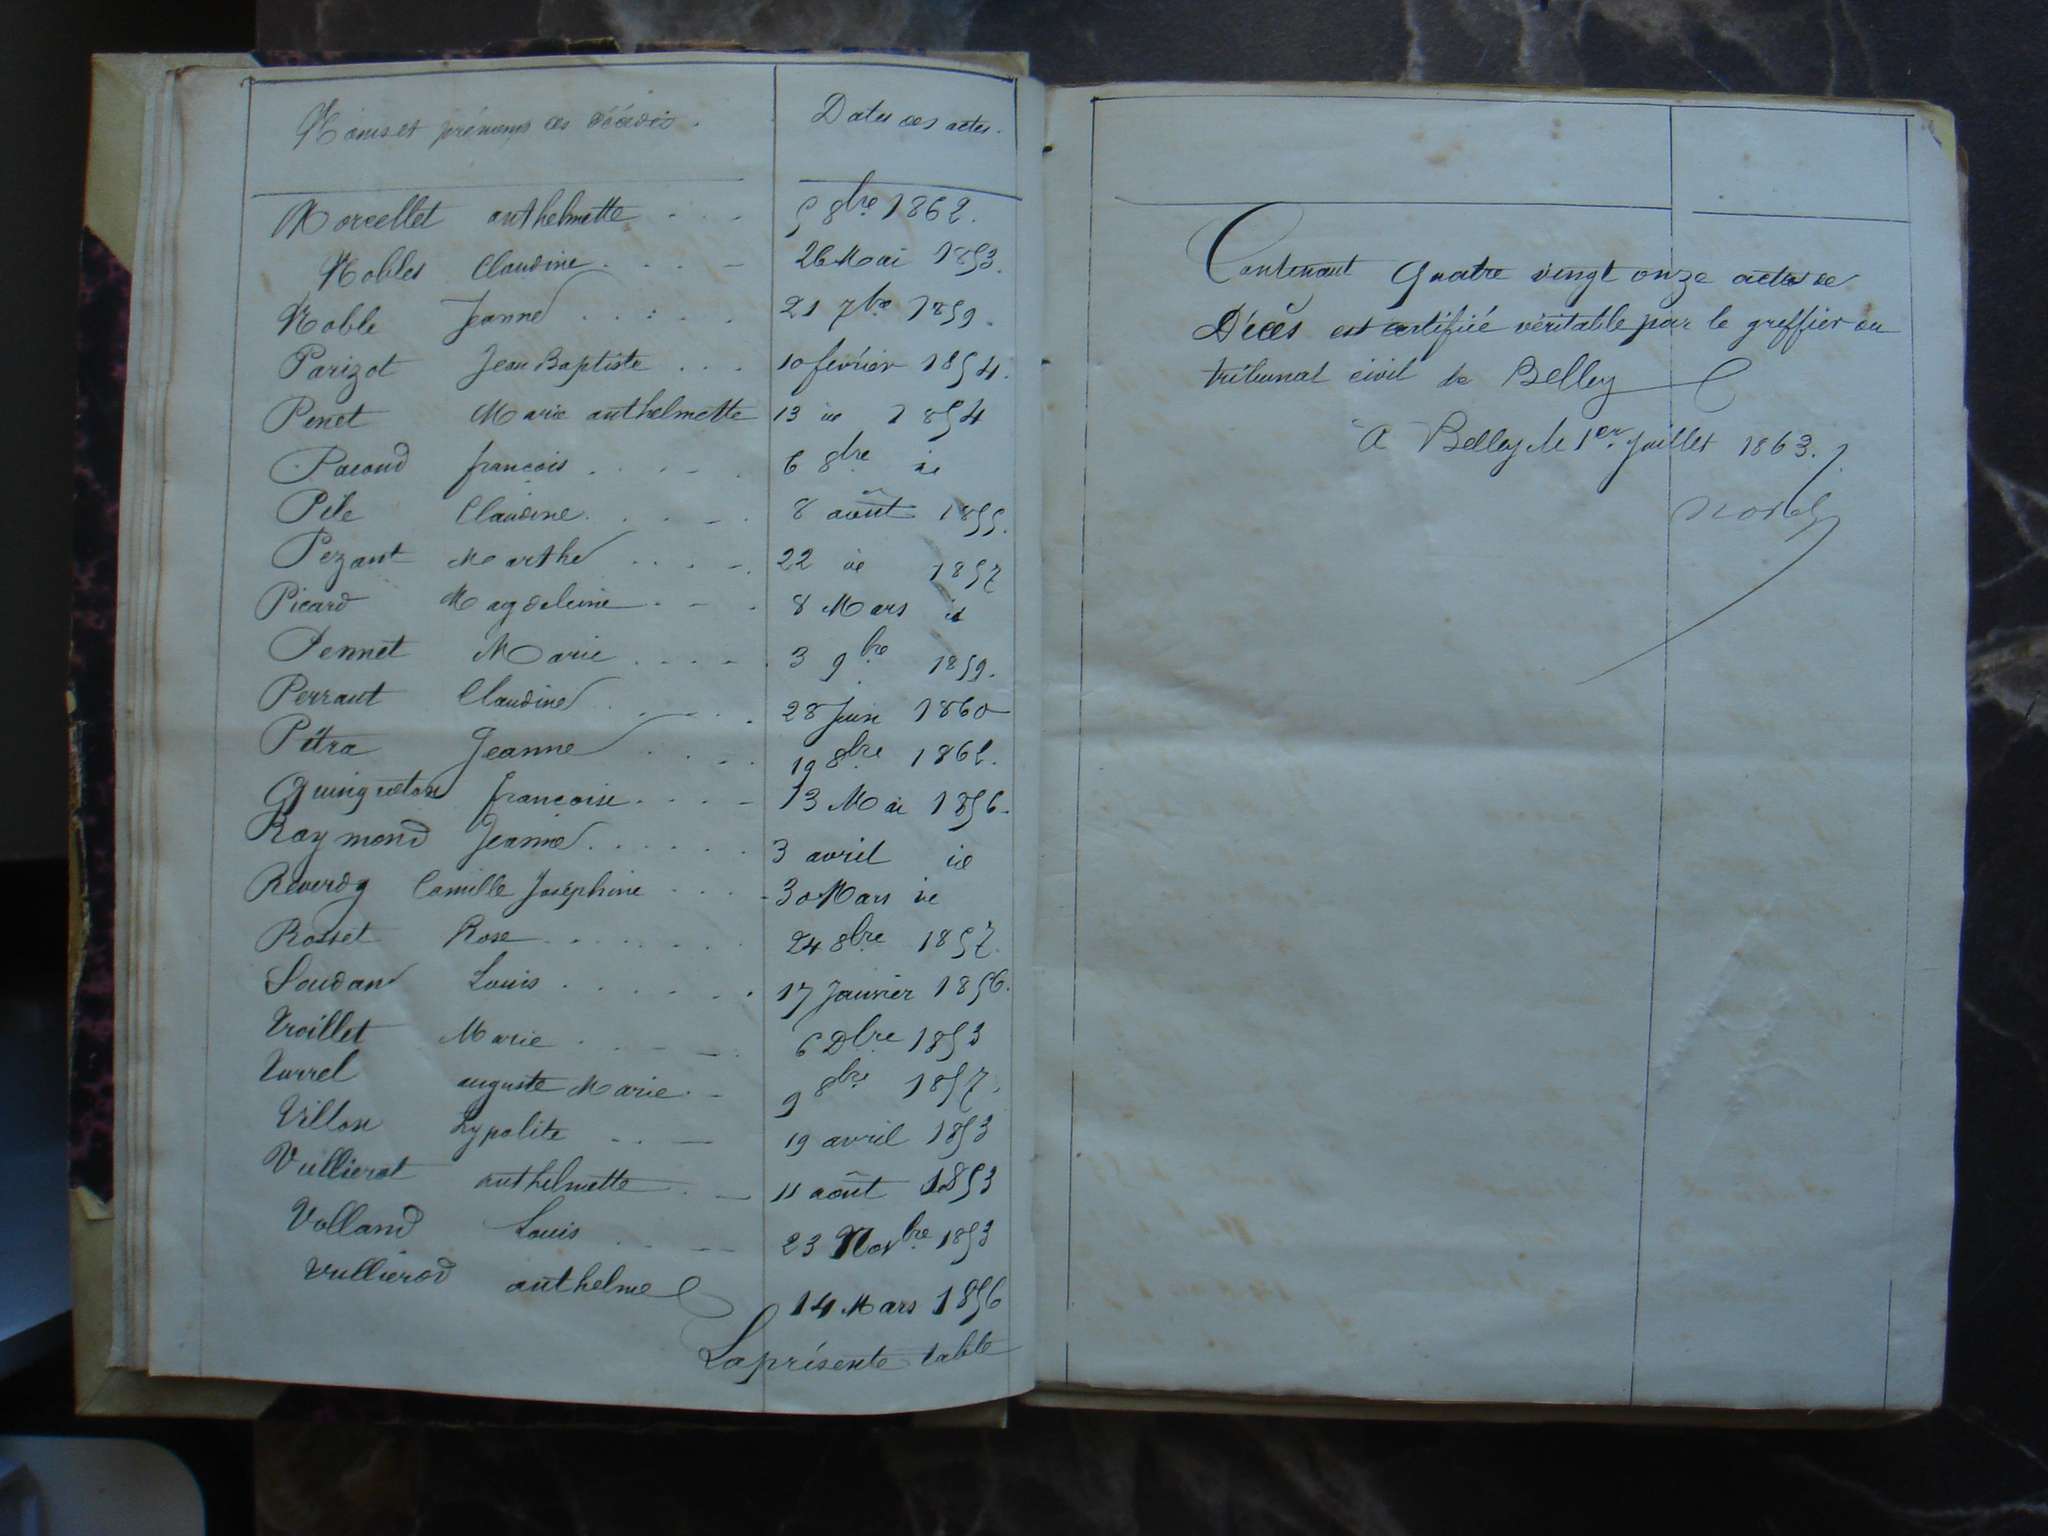 Noms et prénoms des décédés. Dates des actes.
Morcellet anthelmette 5 8bre 1862.
Nobles Claudine 26 Mai 1853.
Noble Jeanne 21 7bre 1859.
Parizot Jean Baptiste 10 février 1854.
Penet Marie anthelmette 13 id 1854
Pacoud françois 6 8bre id
Pile Claudine 8 août 1855.
Pezant Marthe 22 id 1857
Picard Magdeleine 8 Mars id
Pennet Marie 3 9bre 1859.
Perraut Claudine 28 Juin 1860
Pétra Jeanne 19 8bre 1862.
françoise 13 Mai 1856.
Raymond Jeanne 3 avril id
Reverdy Camille Joséphine 30 Mars id
Rosset Rose 24 8bre 1857.
Soudan Louis 17 Janvier 1856.
Troillet Marie 6 Dbre 1853
Turrel auguste Marie 9 8bre 1857.
Villon hypolite 19 avril 1853
Vullierot anthelmette 11 août 1853
Volland Louis 23 Novbre 1853
Vullierod anthelme 14 Mars 1856
La présente table
Contenant quatre vingt onze actes de
Décès est certifiée véritable par le greffier du
tribunal civil de Belley
A Belley le 1er Juillet 1863.